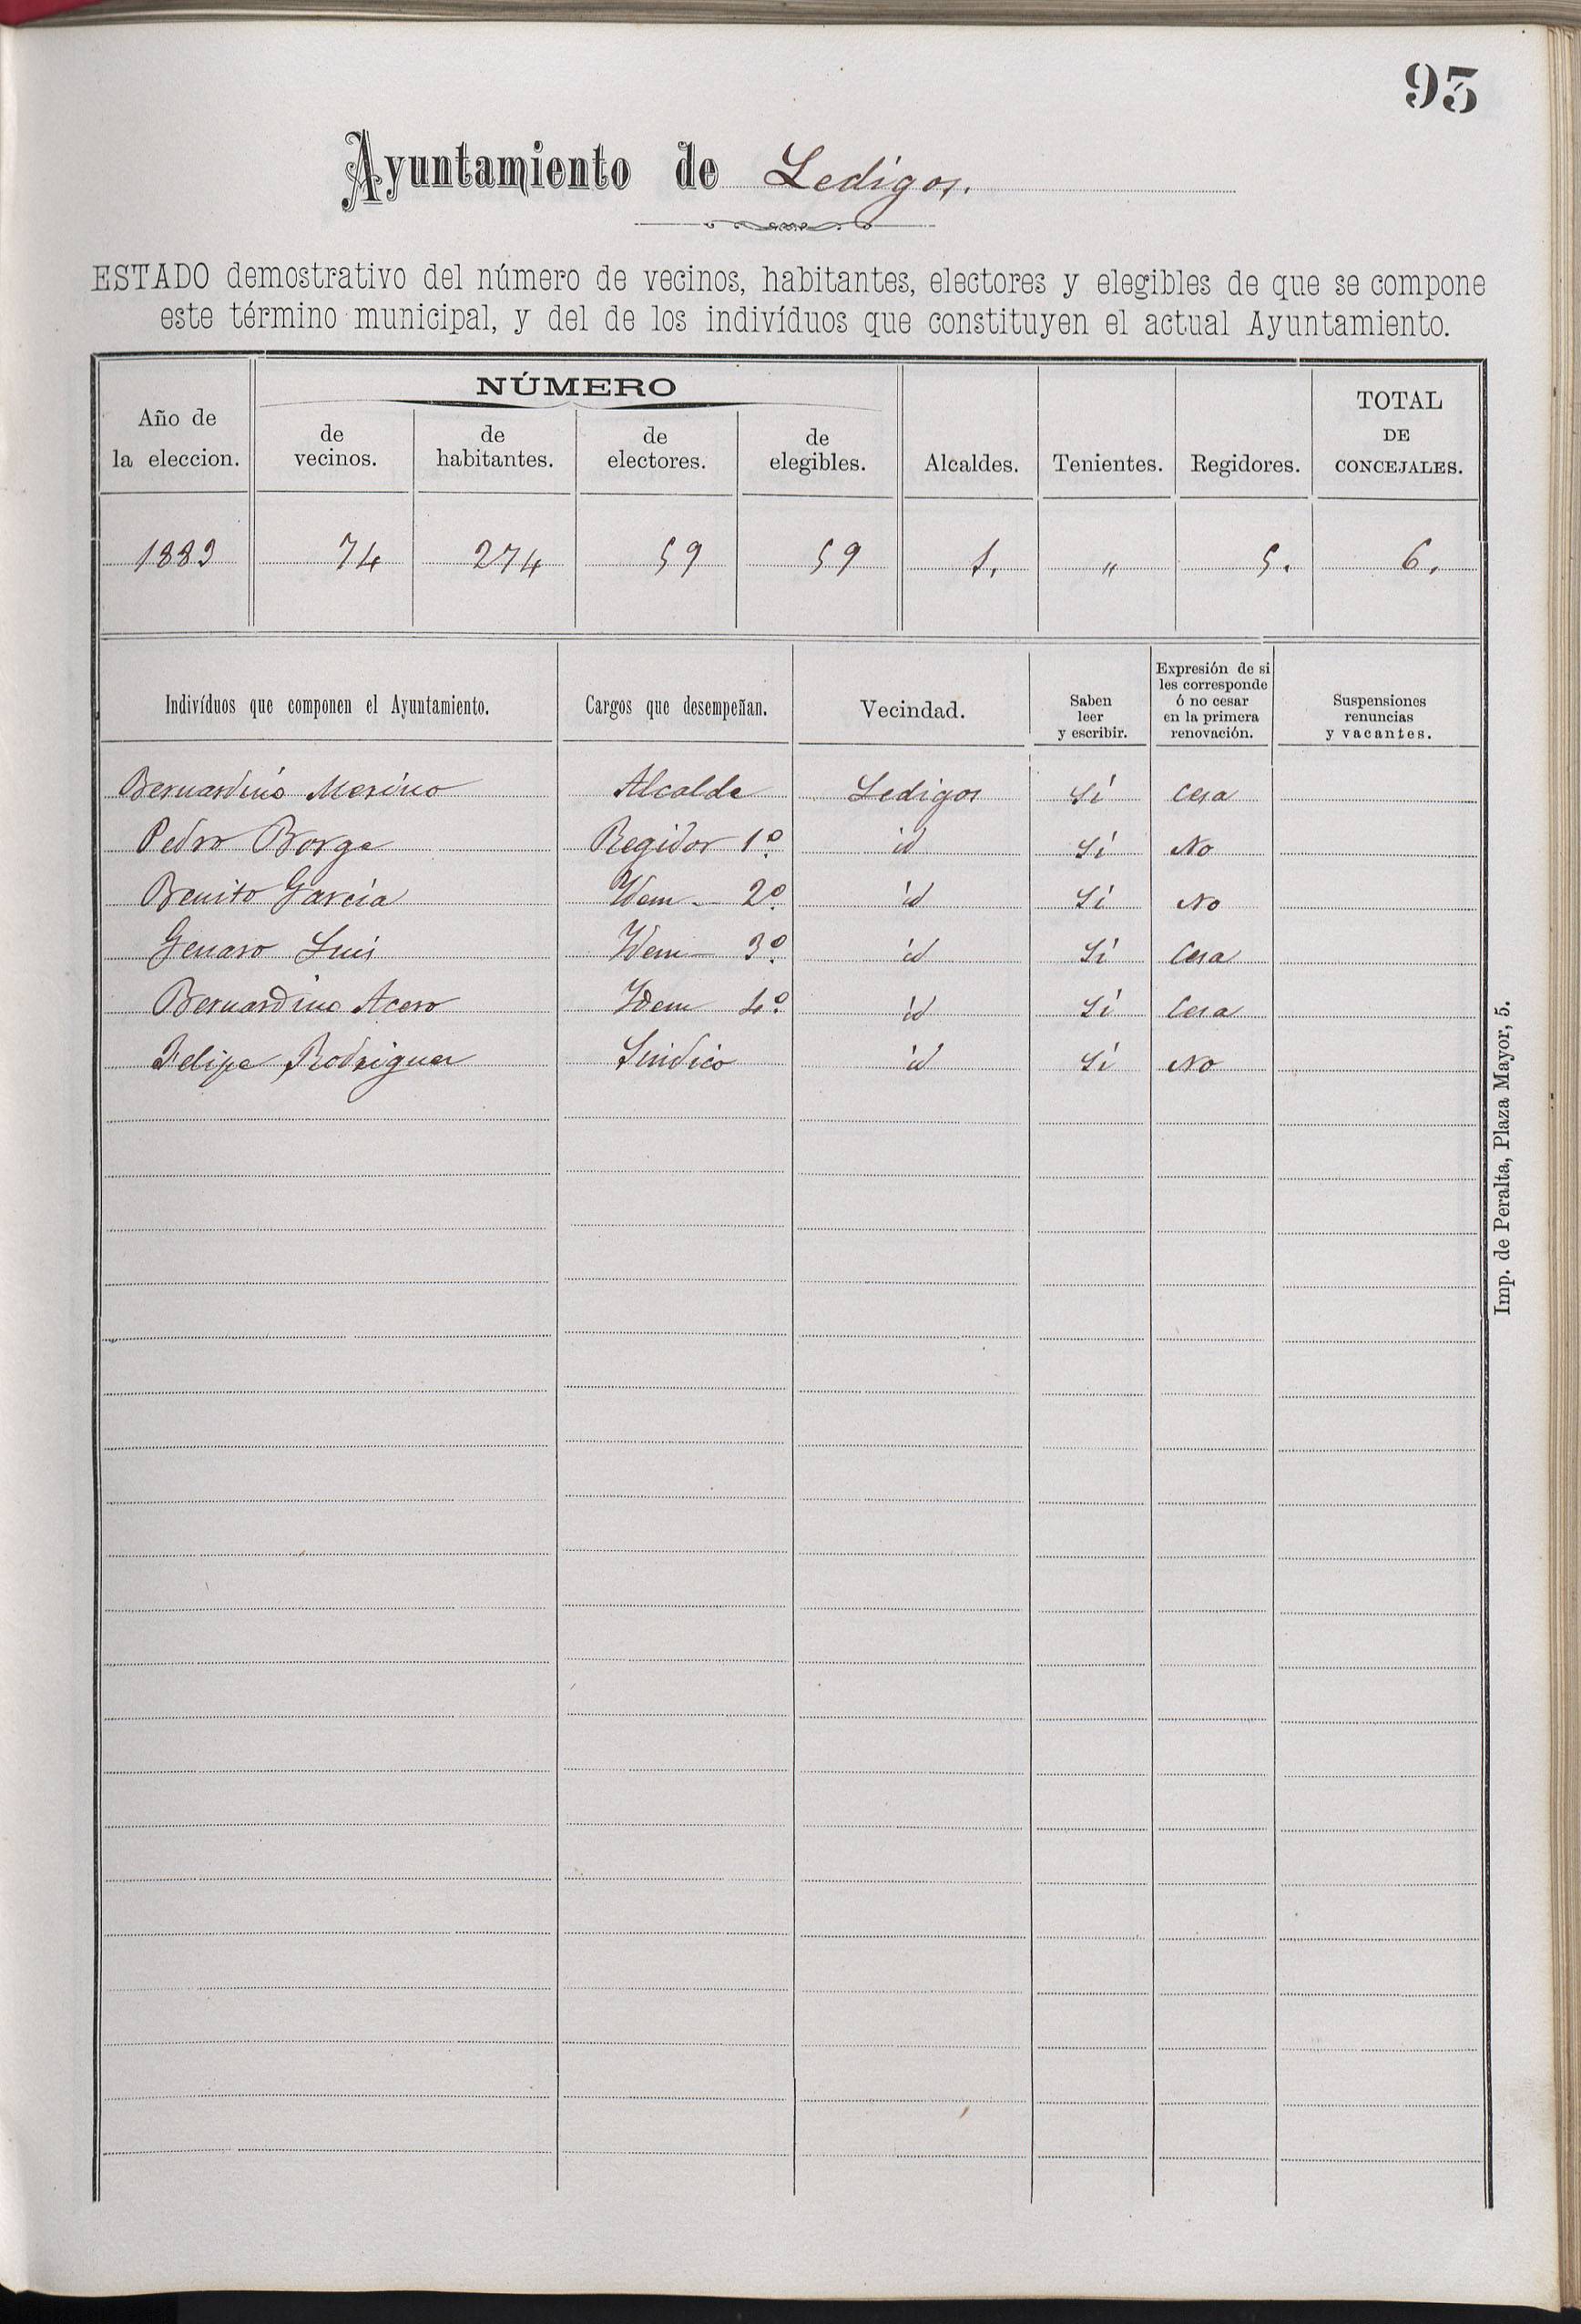 93
Ayuntamiento de Ledigos.
ESTADO demostrativo del número de vecinos, habitantes, electores y elegibles de que se compone
este término municipal, y del de los indivíduos que constituyen el actual Ayuntamiento.
Año de la eleccion. NÚMERO de vecinos. de habitantes. de electores. de elegibles. Alcaldes. Tenientes. Regidores. TOTAL DE CONCEJALES.
1883 74 274 59 59 1. " 5. 6.
Indivíduos que componen el Ayuntamiento. Cargos que desempeñan. Vecindad. Saben leer y escribir. Expresión de si les corresponde ó no cesar en la primera renovación. Suspensiones renuncias y vacantes.
Bernardino Merino Alcalde Ledigos Sí Cesa
Pedro Borge Regidor 1º id Sí No
Benito García Idem 2º id Sí No
Genaro Luis Idem 3º id Sí Cesa
Bernardino Acero Idem 4º id Sí Cesa
Felipe Rodriguez Sindico id Sí No
Imp. de Peralta, Plaza Mayor, 5.